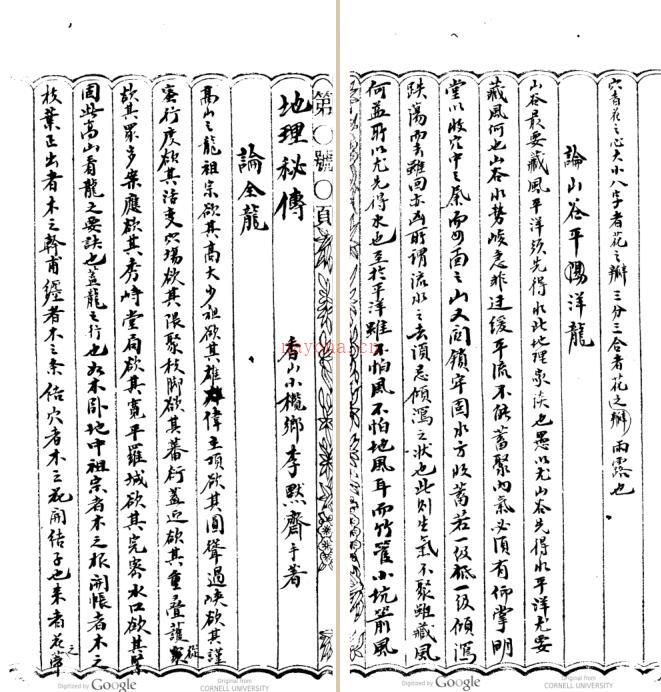 第〇號〇頁
地理秘傳
香山小欖鄉李默齋手著
論全龍
高山之龍祖宗欲其高大少祖欲其雄偉主頂欲其圓聳過峽欲其謹
密行度欲其活变穴場欲其隈聚枝脚欲其蕃衍盖迎欲其重疊護從
欲其眾多案應欲其秀峙堂局欲其寬平羅城欲其完密水口欲其緊
固此高山看龍之要訣也盖龍之行也如木卧地中祖宗者木之根開帳者木之
枝葉正出者木之幹甫纏者木之条结穴者木之花開结子也来者花之
穴者花之心大小八字者花之瓣三分三合者花之瓣雨露也
論山谷平陽洋龍
山谷最要藏風平洋須先得水此地理家談也愚以尤山谷先得水平洋尤要
藏風何也山谷水勢峻急非迂緩平流不能蓄聚内氣必須有仰掌明
堂以收穴中之氣而四面之山又関鎖牢固水方收蓄若一级低一级傾瀉
跌蕩而去雖回亦凶所謂流水之去須忌傾瀉之状也此則生氣不聚雖藏風
何益所以尤先得水也至於平洋雖不怕風不怕地風耳而竹篱小坑箭風
nayona.cn
Digitized by Google
Original from
CORNELL UNIVERSITY
Digitized by Google
Original from
CORNELL UNIVERSITY